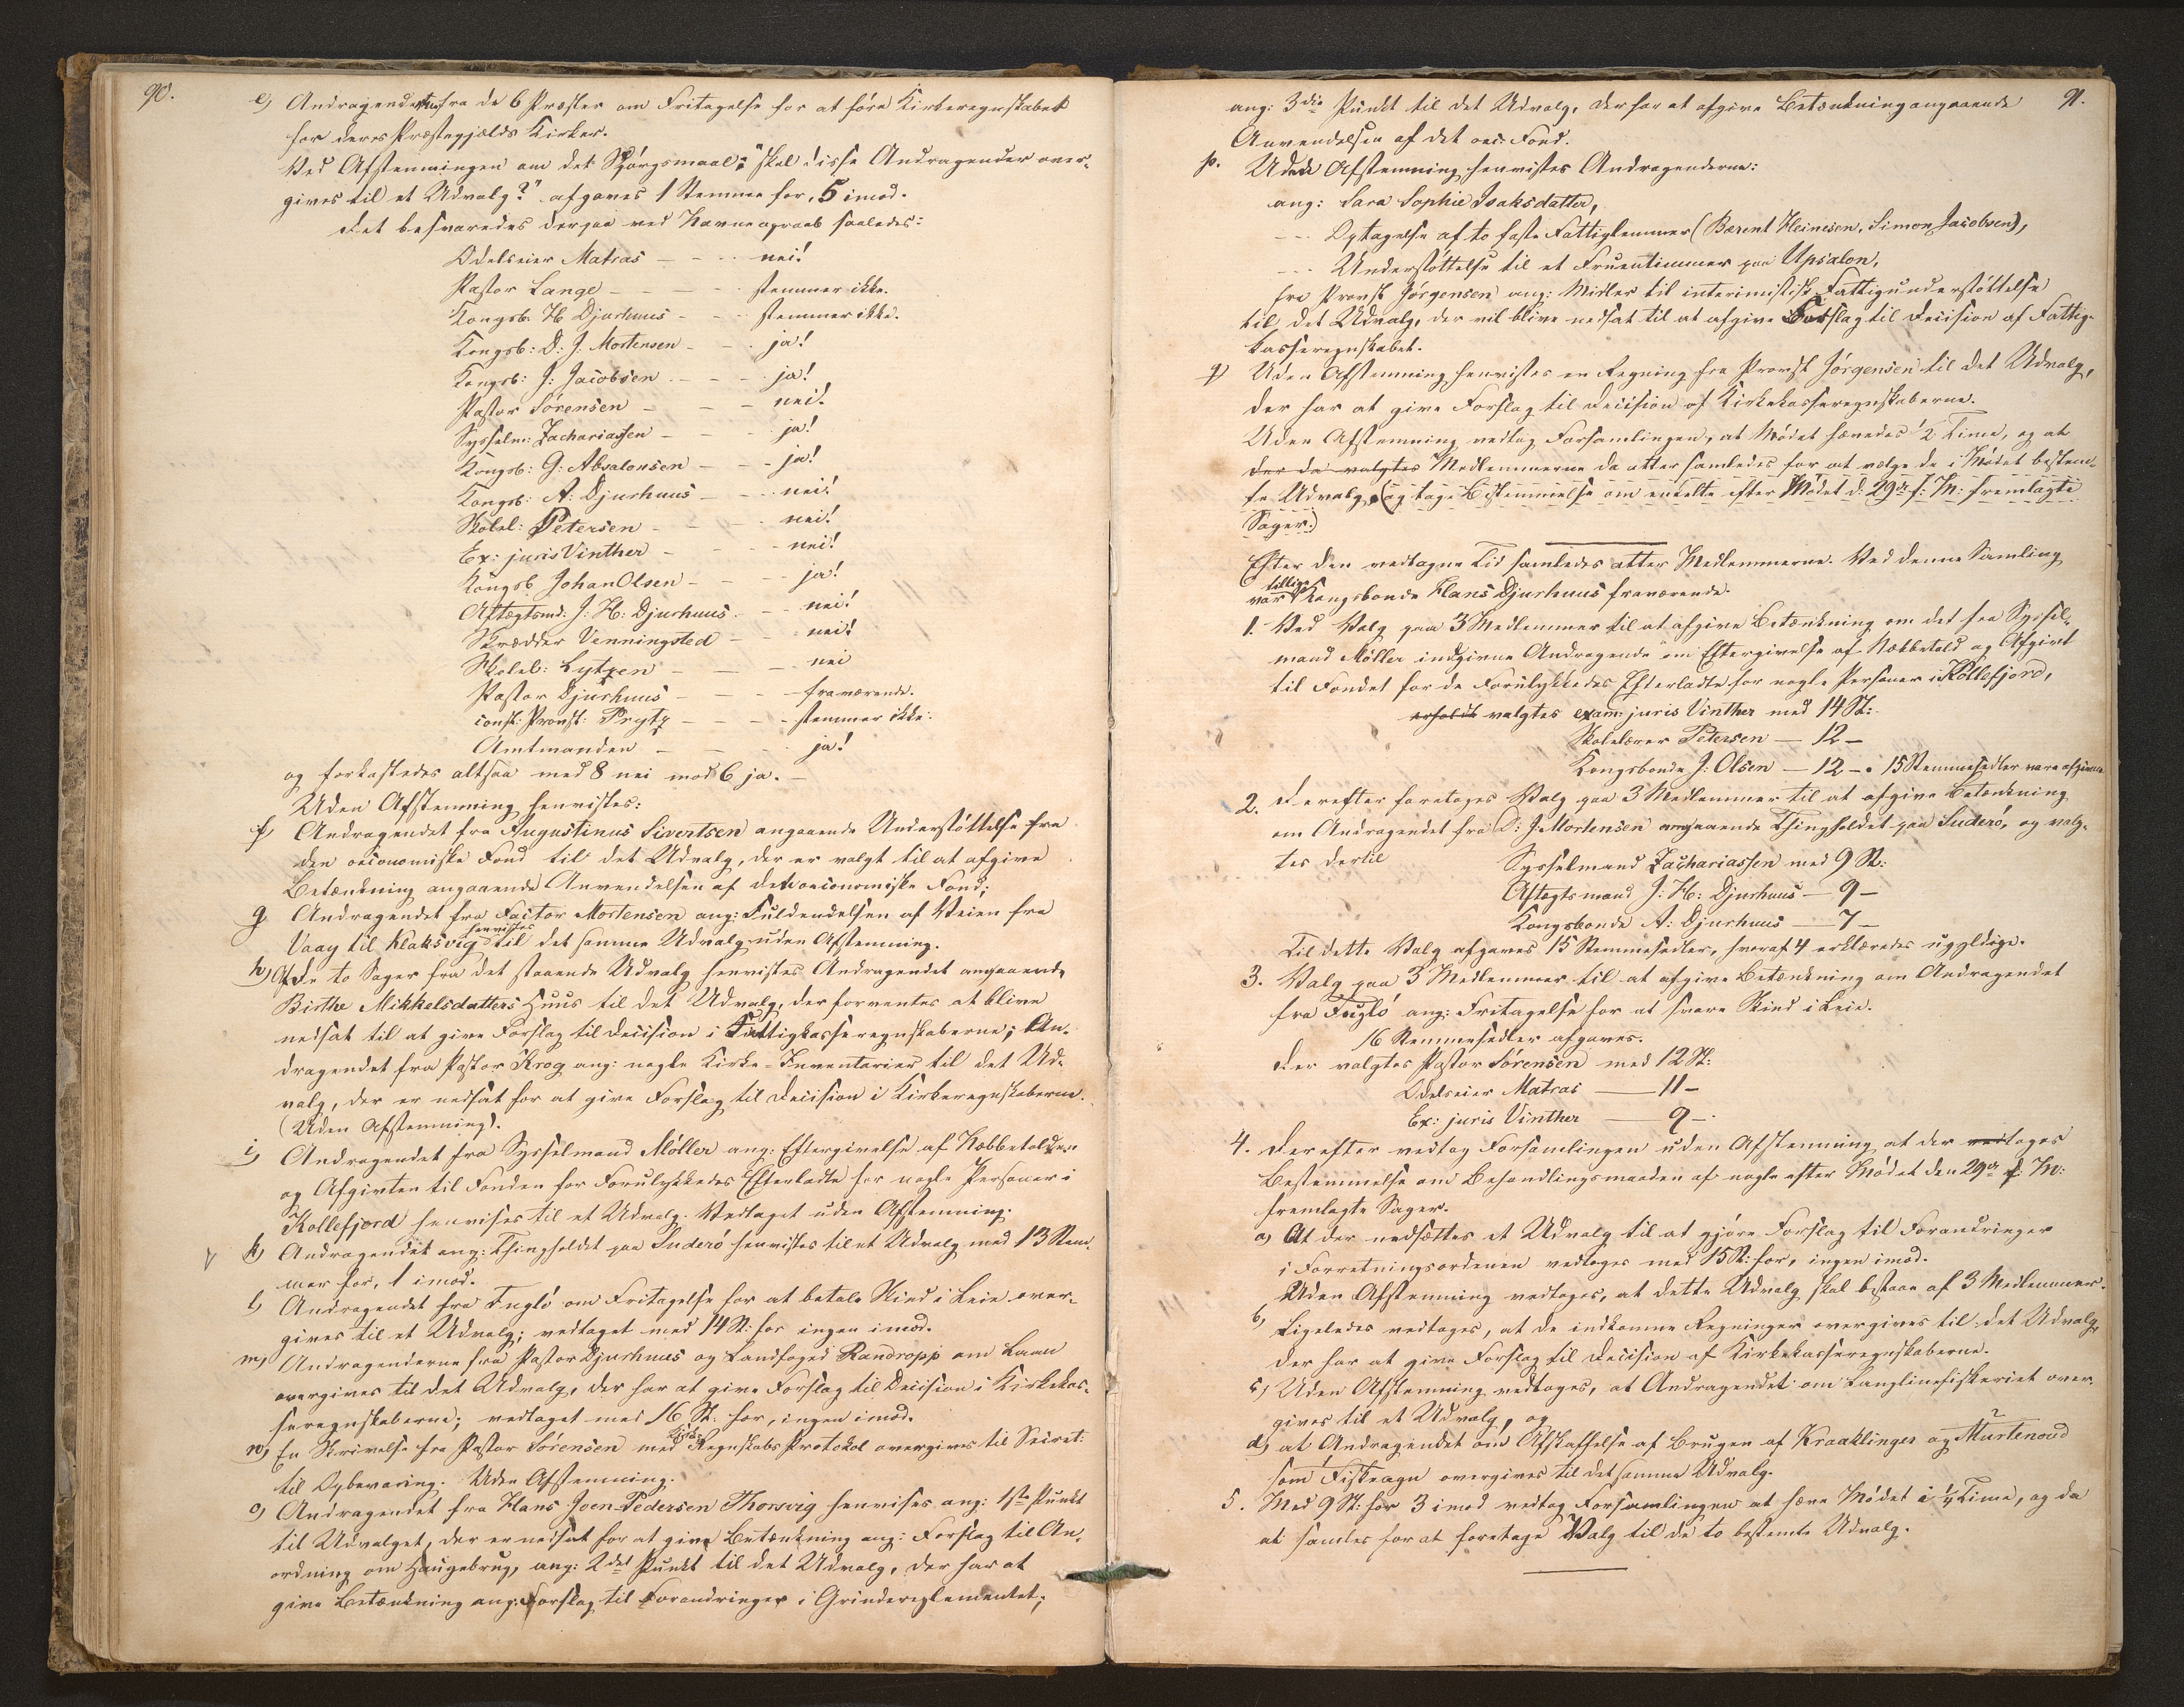 90.
e) Andragenderne fra de 6 Præster om Fritagelse for at føre Kirkeregnskabet
for deres Præstegjælds Kirker.
Ved Afstemningen om det Spørgsmaal: "skal disse Andragender over-
gives til et Udvalg?" afgaves 1 Stemme for, 5 imod.
Det besvaredes derpaa ved Navneopraab saaledes:
Odelseier Matras - - - nei!
Pastor Lange - - - stemmer ikke.
Kongsb. H Djurhuus - - stemmer ikke.
Kongsb: D: J. Mortensen - - ja!
Kongsb: J: Jacobsen - - - ja!
Pastor Sørensen - - - nei!
Sysselm: Zachariassen - - ja!
Kongsb: G: Absalonsen - - - ja!
Kongsb: A: Djurhuus - - - nei!
Skolel: Petersen - - - nei!
Ex: juris Vinther - - - nei!
Kongsb. Johan Olsen - - - ja!
Aftægtsmd: J: H: Djurhuus - - nei!
Skrædder Venningsted - - nei!
Skolel: Lützen - - - nei
Pastor Djurhuus - - - fraværende.
const: Provst: Prytz - - - stemmer ikke.
Amtmanden - - - ja!
og forkastedes altsaa med 8 nei mod 6 ja. -
Uden Afstemning henvistes:
f) Andragendet fra Augustinus Sivertsen angaaende Understøttelse fra
den oeconomiske Fond til det Udvalg, der er valgt til at afgive
Betænkning angaaende Anvendelsen af det oeconomiske Fond;
g Andragendet fra Factor Mortensen ang: Fuldendelsen af Veien fra
Vaag til Klaksvig henvistes til det samme Udvalg uden Afstemning.
h) Af de to Sager fra det staaende Udvalg henvistes Andragendet angaaende
Birthe Mikkelsdatters Huus til det Udvalg, der forventes at blive
nedsat til at give Forslag til Decision i Fattigkasseregnskaberne; An-
dragendet fra Pastor Krog ang: nogle Kirke-Inventarier til det Ud-
valg, der er nedsat for at give Forslag til Decision i Kirkeregnskaberne.
(Uden Afstemning).
i) Andragendet fra Sysselmand Möller ang: Eftergivelse af Næbbetolden
og Afgivten til Fonden for Forulykkedes Efterladte for nogle Personer i
Kollefjord henvises til et Udvalg. Vedtaget uden Afstemning.
k) Andragendet ang: Thingholdet paa Suderö henvistes til et Udvalg med 13 Stem-
mer for, 1 imod.
l) Andragendet fra Fuglö om Fritagelse for at betale Skind i Leie over-
gives til et Udvalg; vedtaget med 14 St: for ingen imod.
m) Andragenderne fra Pastor Djurhuus og Landfoged Randropp om Laan
overgives til det Udvalg, der har at give Forslag til Decision i Kirkekas-
seregnskaberne; vedtaget med 16 St: for, ingen imod.
n) En Skrivelse fra Pastor Sørensen med Kirke Regnskabs Protokol overgives til Secret:
til Opbevaring. Uden Afstemning.
o) Andragendet fra Hans Joen Pedersen Thorsvig henvises ang: 1ste Punkt
til Udvalget, der er nedsat for at give Betænkning ang: Forslag til An-
ordning om Haugebrug, ang: 2det Punkt til det Udvalg, der har at
give Betænkning ang: Forslag til Forandringer i Grindereglementet;
91.
ang: 3die Punkt til det Udvalg, der har at afgive Betænkning angaaende
Anvendelsen af det oec: Fond.
p. Uden Afstemning henvistes Andragenderne:
ang: Sara Sophie Isaksdatter,
--- Optagelse af to faste Fattiglemmer (Berent Heinesen, Simon Jacobsen),
--- Understøttelse til et Fruentimmer paa Upsalon,
fra Provst Jörgensen ang: Midler til interimistisk Fattigunderstøttelse
til det Udvalg, der vil blive nedsat til at afgive Forslag til Decision af Fattig-
kasseregnskabet.
q) Uden Afstemning henvistes en Regning fra Provst Jörgensen til det Udvalg,
der har at give Forslag til Decision af Kirkekasseregnskaberne.
Uden Afstemning vedtog Forsamlingen, at Mødet hævedes ½ Time, og at
der da valgtes Medlemmerne da atter samledes for at vælge de i Mødet bestem-
te Udvalg, (og tage Bestemmelse om enkelte efter Mødet d: 29de f: M: fremlagte
Sager.)
Efter den vedtagne Tid samledes atter Medlemmerne. Ved denne Samling
var tillige Kongsbonde Hans Djurhuus fraværende.
1. Ved Valg paa 3 Medlemmer til at afgive Betænkning om det fra Syssel-
mand Möller indgivne Andragende om Eftergivelse af Næbbetold og Afgivt
til Fondet for de Forulykkedes Efterladte for nogle Personer i Kollefjord,
erholdt valgtes exam: juris Vinther med 14 St:
Skolelærer Petersen - 12 -
Kongsbonde J: Olsen - 12 - . 15 Stemmesedler vare afgivne.
2. Derefter foretoges Valg paa 3 Medlemmer til at afgive Betænkning
om Andragendet fra D: J. Mortensen angaaende Thingholdet paa Suderö, og valg-
tes dertil Sysselmand Zachariassen med 9 St:
Aftægtsmand J: H: Djurhuus - 9 -
Kongsbonde A: Djurhuus - 7 -
Til dette Valg afgaves 15 Stemmesedler, hvoraf 4 erklæredes ugyldige.
3. Valg paa 3 Medlemmer til at afgive Betænkning om Andragendet
fra Fuglö ang: Fritagelse for at svare Skind i Leie.
16 Stemmesedler afgaves.
Der valgtes Pastor Sørensen med 12 St:
Odelseier Matras - 11 -
Ex: juris Vinther - 9 -
4. Derefter vedtog Forsamlingen uden Afstemning at der vedtages
Bestemmelse om Behandlingsmaaden af nogle efter Mødet den 29de f: M:
fremlagte Sager.
a) At der nedsættes et Udvalg til at gjøre Forslag til Forandringer
i Forretningsordenen vedtoges med 15 St: for, ingen imod.
Uden Afstemning vedtoges, at dette Udvalg skal bestaae af 3 Medlemmer.
b) Ligeledes vedtoges, at de indkomne Regninger overgives til det Udvalg,
der har at give Forslag til Decision af Kirkekasseregnskaberne.
c) Uden Afstemning vedtoges, at Andragendet om Langlinefiskeriet over-
gives til et Udvalg, og
d) at Andragendet om Afskaffelse af Brugen af Kraaklinger og Murtenoud
som Fiskeagn overgives til det samme Udvalg.
5. Med 9 St: for 3 imod vedtog Forsamlingen at hæve Mødet i ¼ Time, og da
at samles for at foretage Valg til de to bestemte Udvalg.